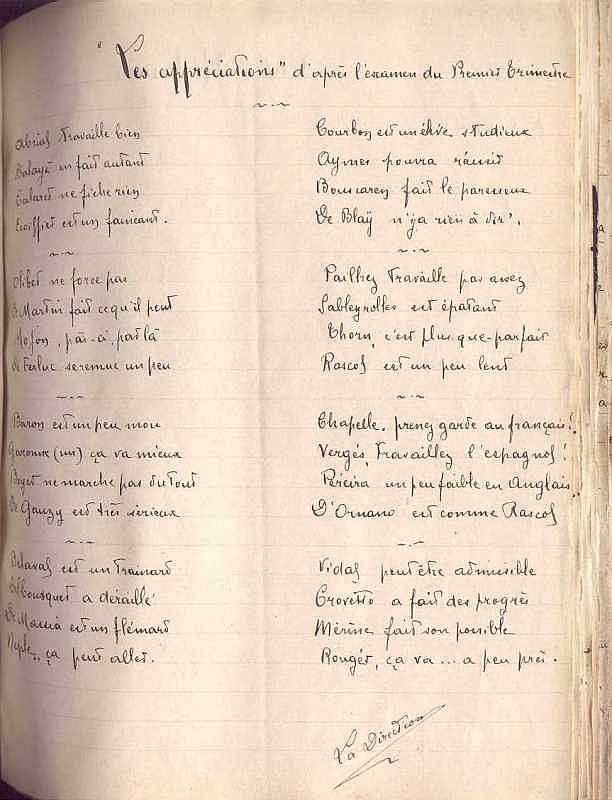 "Les appréciations" d'après l'examen du Premier Trimestre
Abrial travaille bien
Balayé en fait autant
Cabaret ne fiche rien
Ecoiffier est un fainéant.
Olibet ne force pas
B. Martin fait ce qu'il peut
Mofon, par-ci, par là
De Ferluc se remue un peu
Baron est un peu mou
Garonne (un) ça va mieux
ne marche pas du tout
De Gauzy est très sérieux
Belaval est un trainard
a déraillé
De Massia est un flémard
ça peut aller.
Courbon est un élève studieux
Aymes pourra réussir
Bouscaren fait le paresseux
De Blaÿ n'y a rien à dir'.
Pailhez travaille pas assez
Sableyrolles est épatant
Thorn, c'est plus-que-parfait
Rascol est un peu lent
Chapelle, prenez garde au français!
Vergés, Travaillez l'espagnol!
Péreira un peu faible en Anglais
D'Ornano est comme Rascol
Vidal peut être admissible
Crovetto a fait des progrès
Mérine fait son possible
Rouget, ça va... a peu près.
La Direction